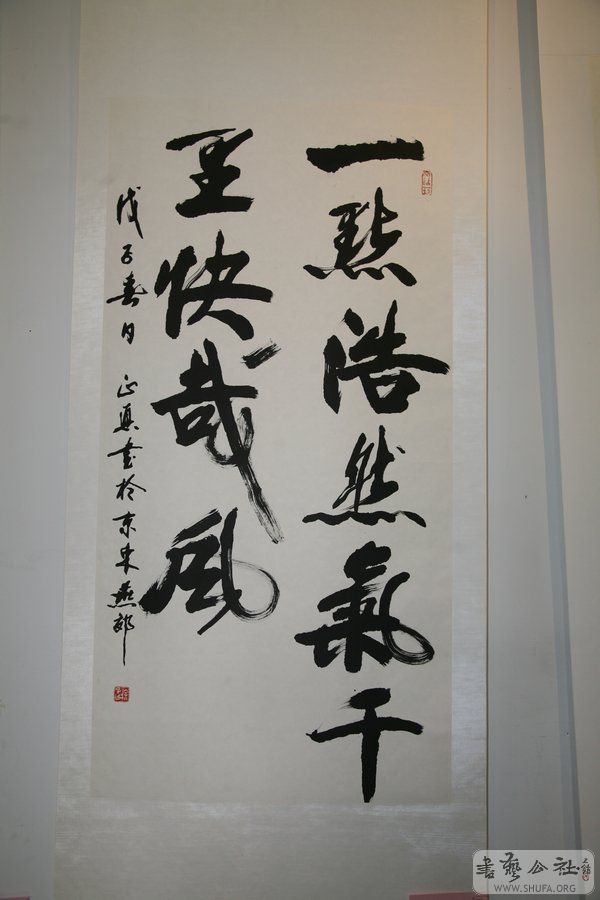 一點浩然氣千
里快哉風
戊子春月 正真書於京東燕郊
書藝公社
WWW.SHUFA.ORG